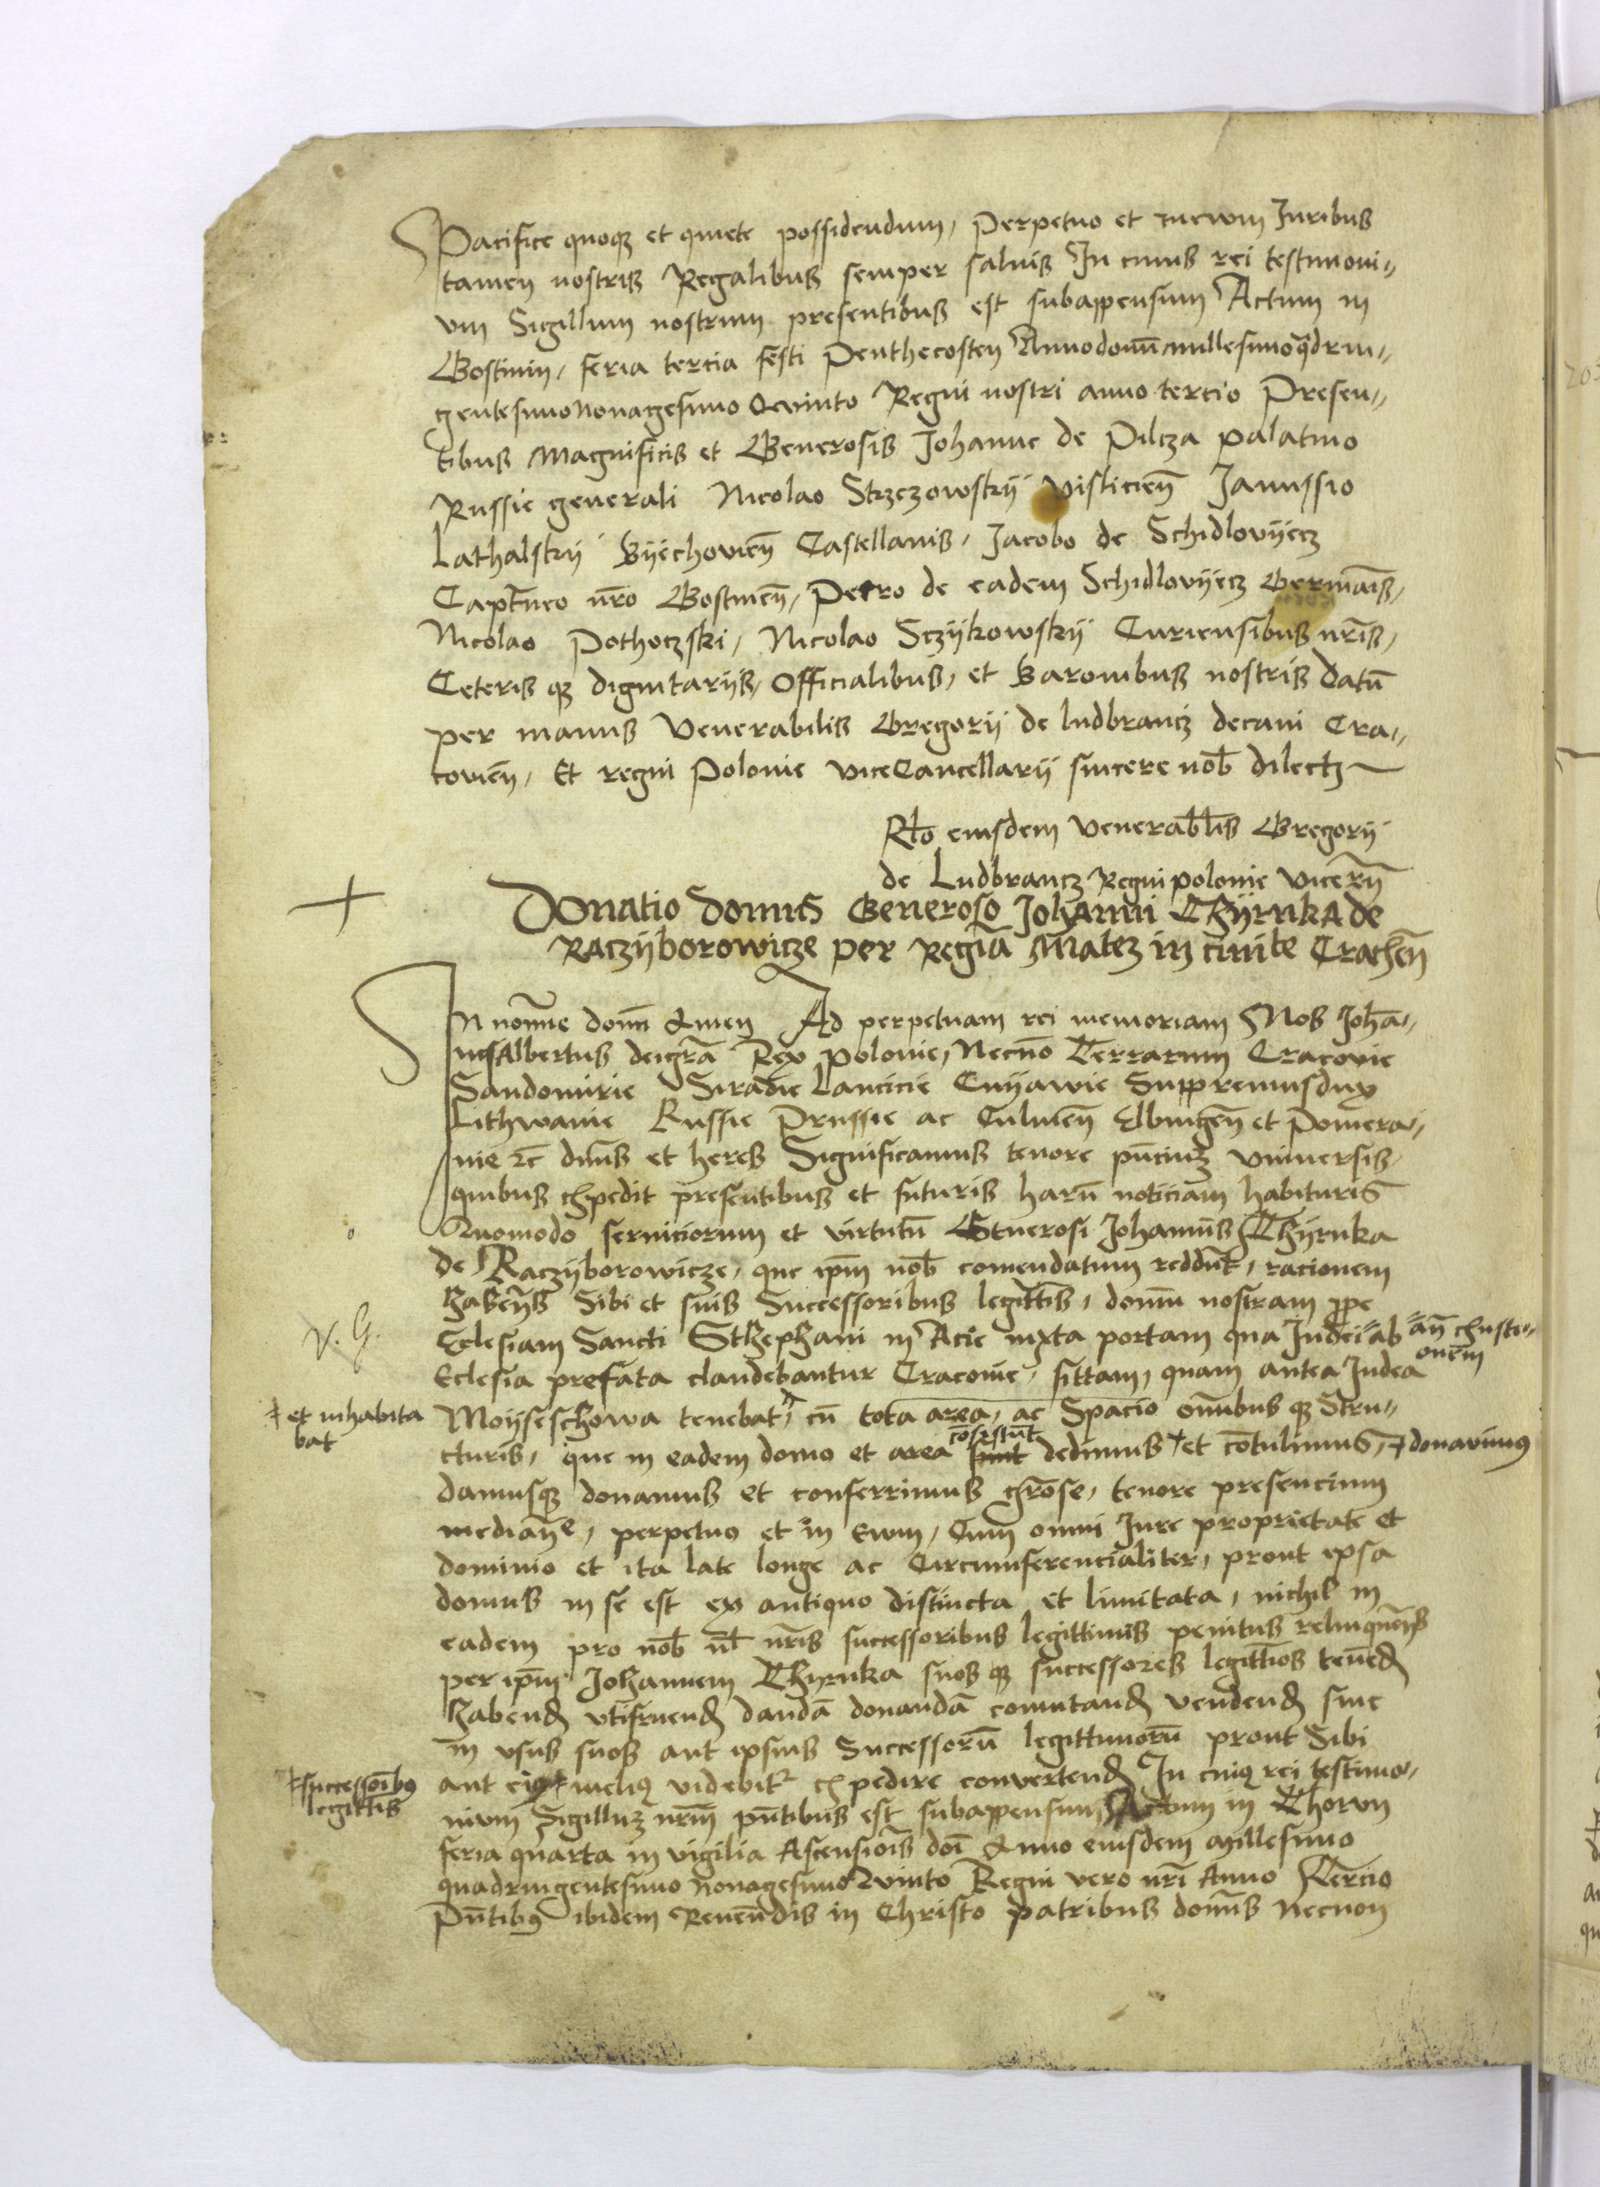 Pacifice quoqz et quiete possidendum, Perpetuo et inewum Juribus
tamen nostris Regalibus semper saluis In cuius rei testimoni„
um Sigillum nostrum presentibus est subappensum Actum in
Gostinin, feria tercia festi Penthecosten Anno domini millesimo q̃drin„
gentesimo Nonagesimo Qvinto Regni nostri anno tercio Presen„
tibus Magnificis et Generosis Johanne de Pilcza palatino
Russie generali Nicolao Strzezowskÿ Visliciеn̄ Janussio
Lathalskÿ Byechovien̄ Castellanis, Jacobo de Schidlovÿecz
Capt̄neo nr̄o Gostinen̄, Petro de eadem Schidlovÿecz Germaīs,
Nicolao Pothoczski, Nicolao Sczÿkowskÿ Curiensibus nrīs,
Ceteris qz dignitarÿs, Officialibus, et Baronibus nostris Datū
per manus Venerabilis Gregorÿ de ludbrancz decani Cra„
covien̄, Et regni Polonie ViceCancellarÿ sincere nob̄ dilectj
Rl̄o eiusdem Venerab̄lis Gregorÿ
de Ludbrancz Regni polonie Vicerÿ
Donatio Domus Generoso Johanni Thÿrnka de
Raczÿborowicze per Regiā Matez in ciuite Crachen̄
In nōīe domī Amen Ad perpetuam rei memoriam Nos Joha„
nes Albertus dei gr̄a Rex polonie, Necnō Terrarum Cracovie
Sandomirie Siradie Lancicie Cuÿawie Suppremus dux
Lithwanie Russie Prussie ac Culmen̄ Elbingen̄ et Pomera„
nie etc̄ dn̄us et heres Significamus tenore pn̄ciuz vniuersis,
quibus expedit presentibus et futuris harū noticiam habituris
Quomodo seruiciorum et virtutū Generosi Johannis Thÿrnka
de Raczÿborowicze, que ip̄m nob̄ comendatum reddūt, racionem
haben̄s Sibi et suis Successoribus legittīs, domū nostram ꝓpe
Eclesiam Sancti Sthephani in Acie iuxta portam qua Judei "ab "an̄ chuste„
onem
Eclesia prefata claudebantur Cracovie, sittam, quam antea Judea
‡ et inhabita
bat
Moÿseschowa tenebat, cū tota area, ac Spacio omībus qz Stru„
cturis, que in eadem domo et area sunt consistūt dedimus + et cōtulimus, + donavimus
damusqz donamus et conferrimus gr̄ose, tenore presencium
median̄e, perpetuo et in Ewm, Cum omni Jure proprietate et
dominio et ita late longe ac Circumferencialiter, prout ipsa
domus in se est ex antiquo distincta et limitata, nichil in
eadem pro nob̄ vl̄ nrīs successoribus legittimis penitus relinquen̄s
per ip̄m Johannem Thyrnka suos qz successores legittīos tenēd
habend vtifruend dandā donandā comutand vendend sine
in vsus suos aut ipsius Successorū legittimorū prout Sibi
‡ successoribus
legittīs
aut eius melius videbitur expedire convertend In cuius rei testimo„
nium Sigilluz nrm̄ pn̄tibus est subappensum Actum in Thorvn
feria quarta in vigilia Ascensiōis doī Anno eiusdem Millesimo
quadringentesimo Nonagesimo Qvinto Regni vero nrī Anno Tercio
Pn̄tibus ibidem Reuen̄dis in Christo patribus domīs Necnon
V. G.